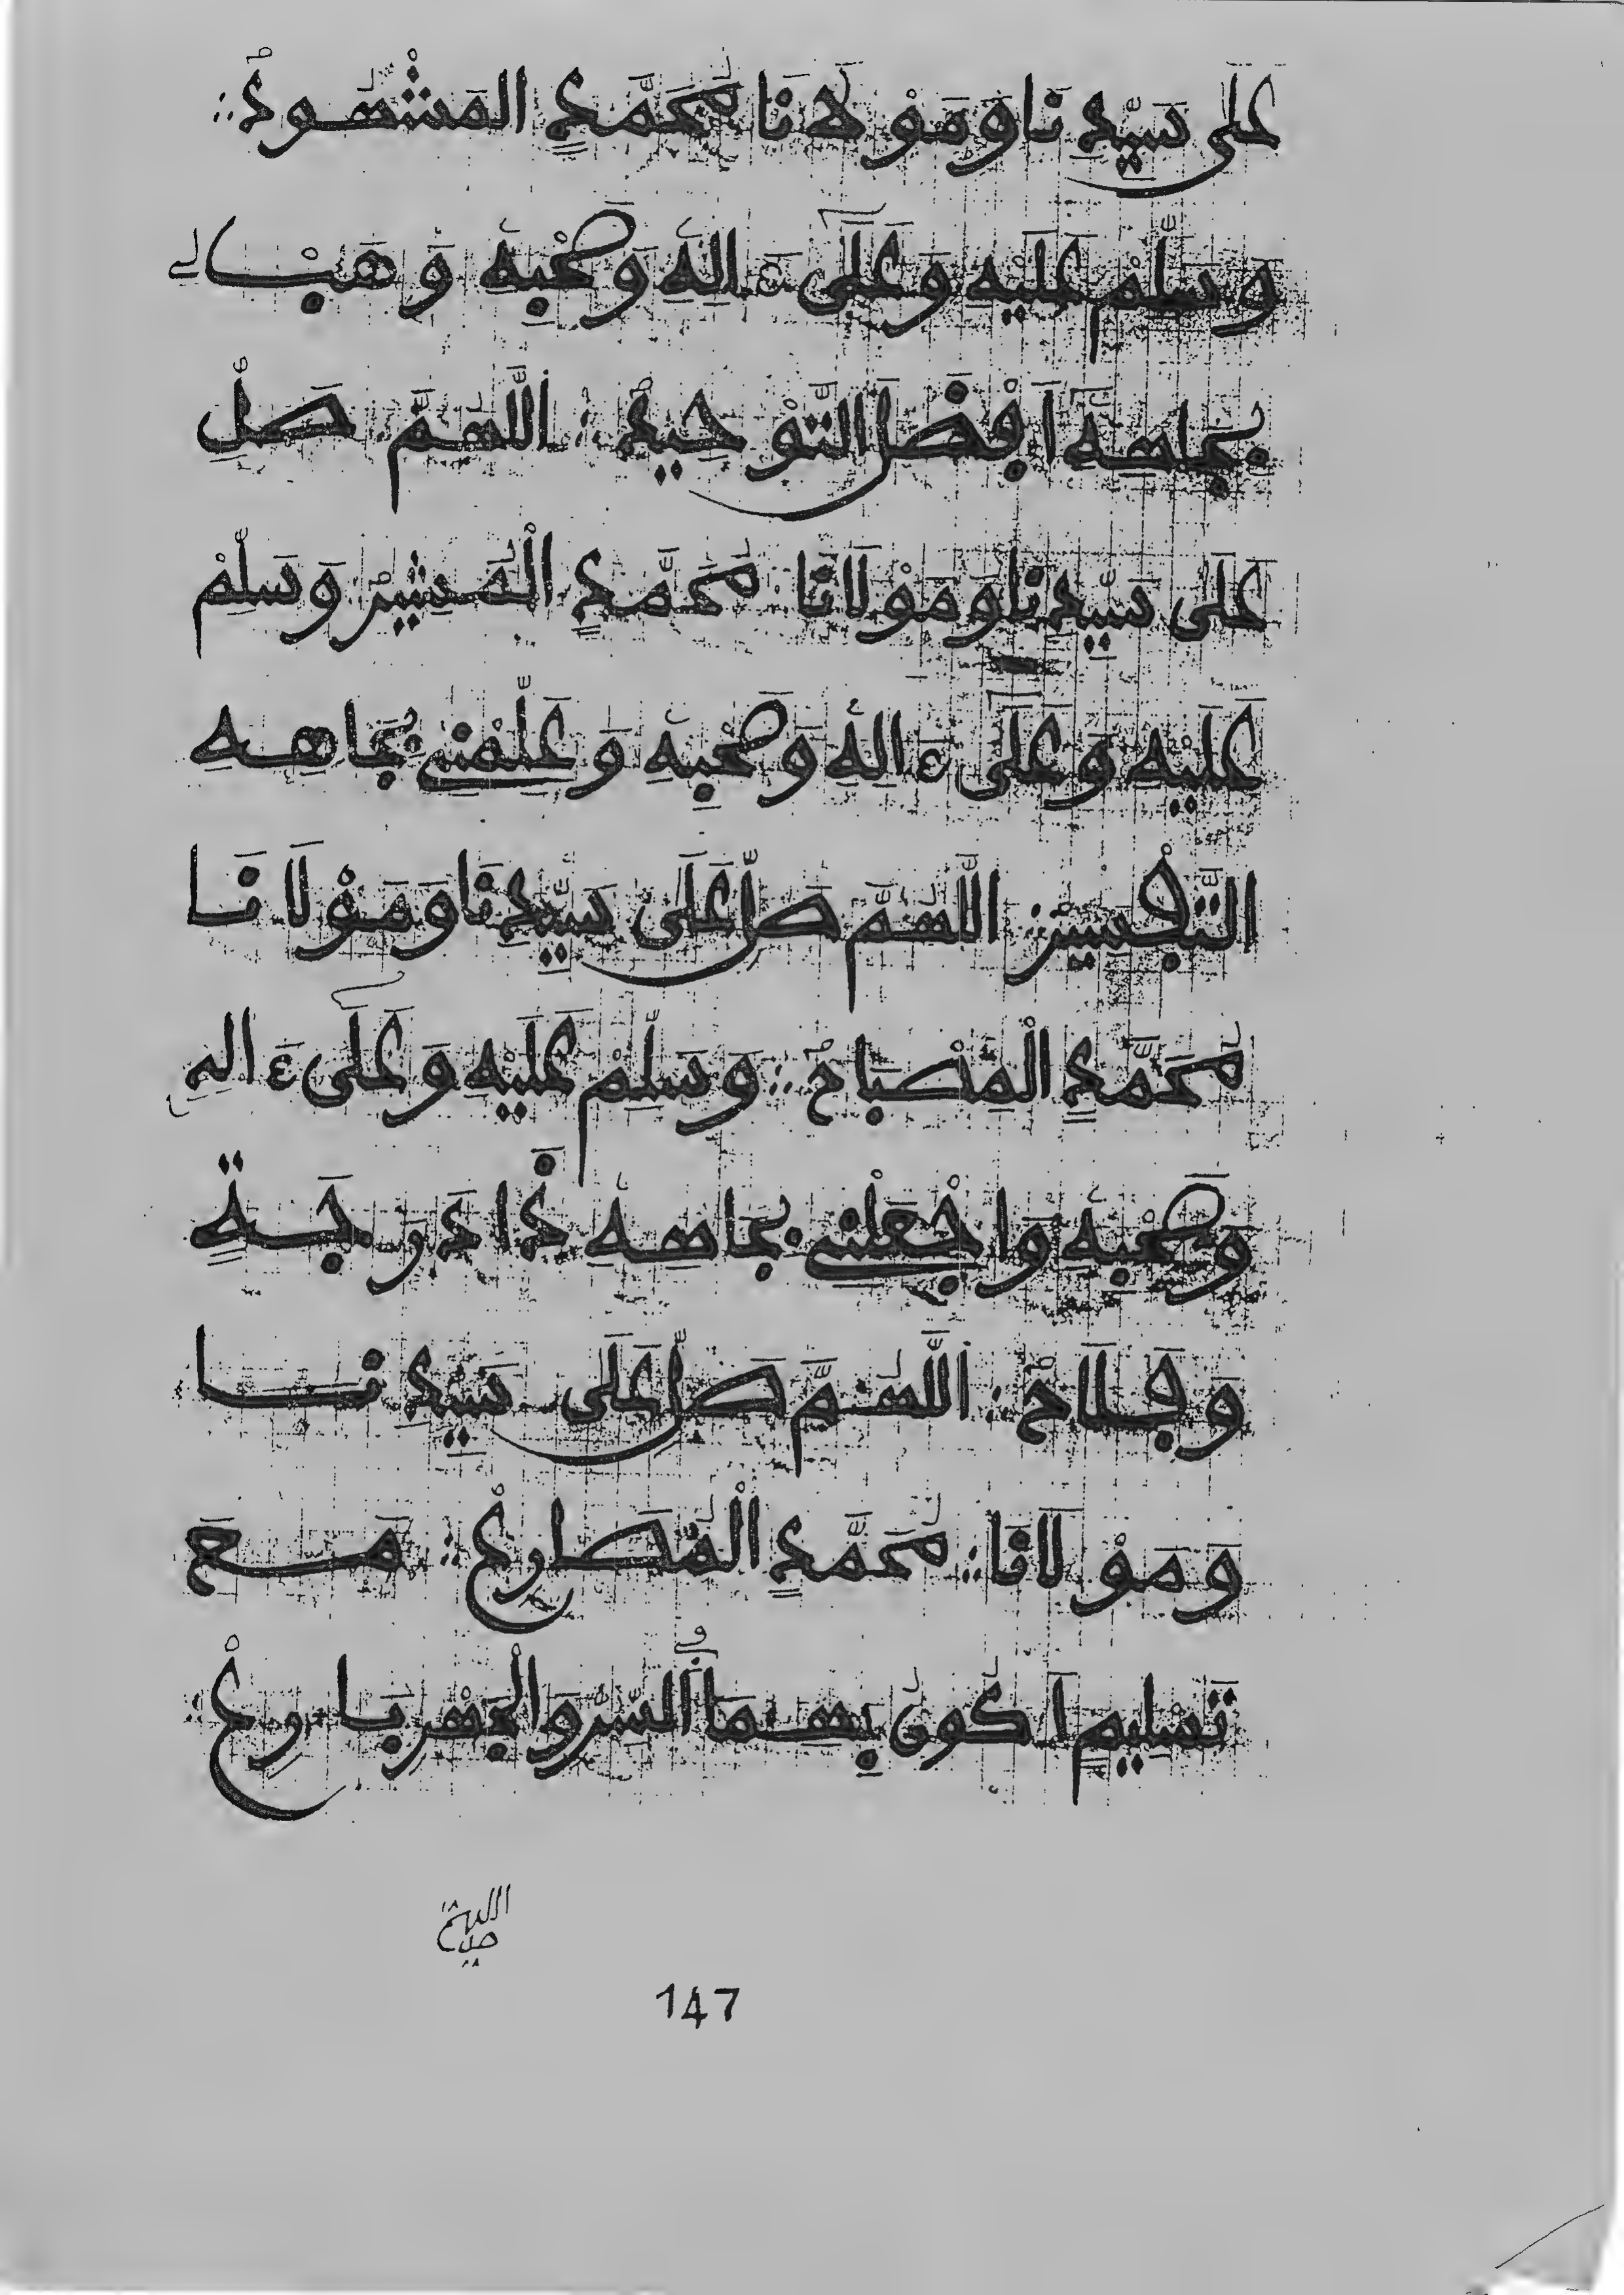 عَلَى سَيِّدِنَا وَمَوْلَانَا مُحَمَّدٍ الْمَشْهُودْ
وَسَلِّمْ عَلَيْهِ وَعَلَى ءَالِهِ وَصَحْبِهِ وَهَبْ لِي
بِجَاهِهِ أَفْضَلَ التَّوْحِيدْ اللَّهُمَّ صَلِّ
عَلَى سَيِّدِنَا وَمَوْلَانَا مُحَمَّدٍ الْمُشِيرْ وَسَلِّمْ
عَلَيْهِ وَعَلَى ءَالِهِ وَصَحْبِهِ وَعَلِّمْنِي بِجَاهِهِ
التَّفْسِيرْ اللَّهُمَّ صَلِّ عَلَى سَيِّدِنَا وَمَوْلَانَا
مُحَمَّدٍ الْمِصْبَاحْ وَسَلِّمْ عَلَيْهِ وَعَلَى ءَالِهِ
وَصَحْبِهِ وَاجْعَلْنِي بِجَاهِهِ ذَا دَرَجَةٍ
وَفَلَاحْ اللَّهُمَّ صَلِّ عَلَى سَيِّدِنَا
وَمَوْلَانَا مُحَمَّدٍ الْمُصَارِعْ مَعَ
تَسْلِيمٍ أَكُونُ بِهِمَا فِي السِّرِّ وَالْجَهْرِ بَارِعْ
اللهم صل
147